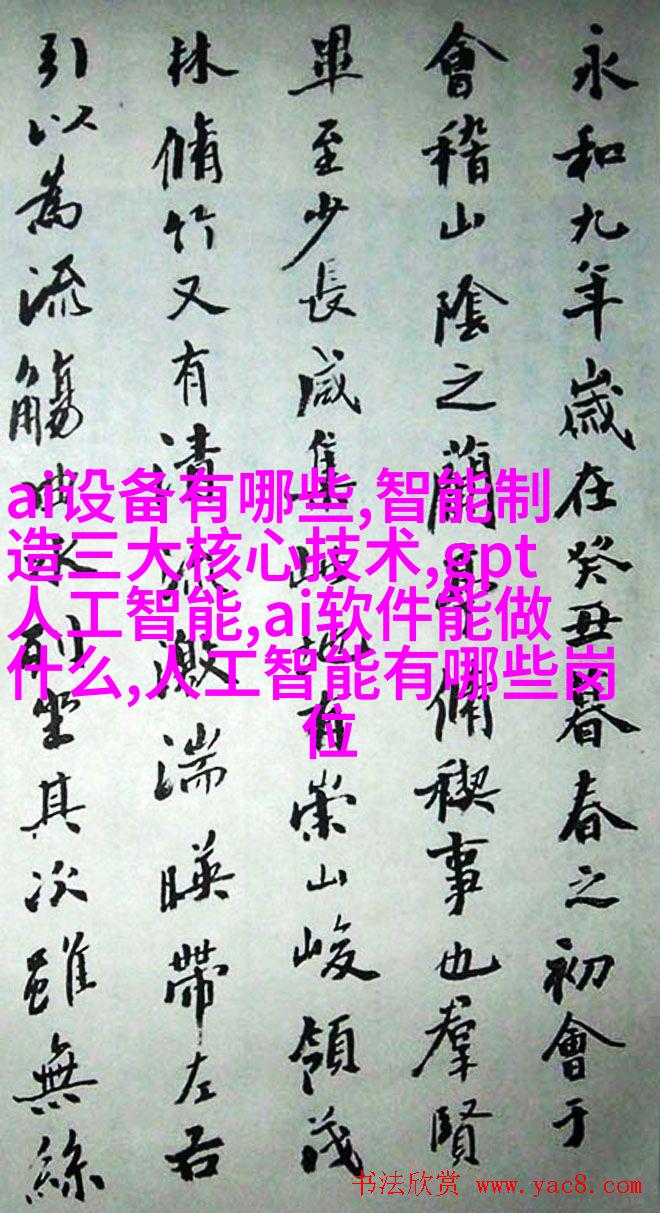 永和九年歲在癸丑暮春之初會于
會稽山陰之蘭亭脩稧事也羣賢
畢至少長咸集此地有崇山峻領茂
林脩竹又有清流激湍暎帶左右
引以為流觴曲水列坐其次雖無絲
ai设备有哪些,智能制
造三大核心技术,gpt
人工智能,ai软件能做
什么,人工智能有哪些岗
位
书法欣赏 www.yac8.com